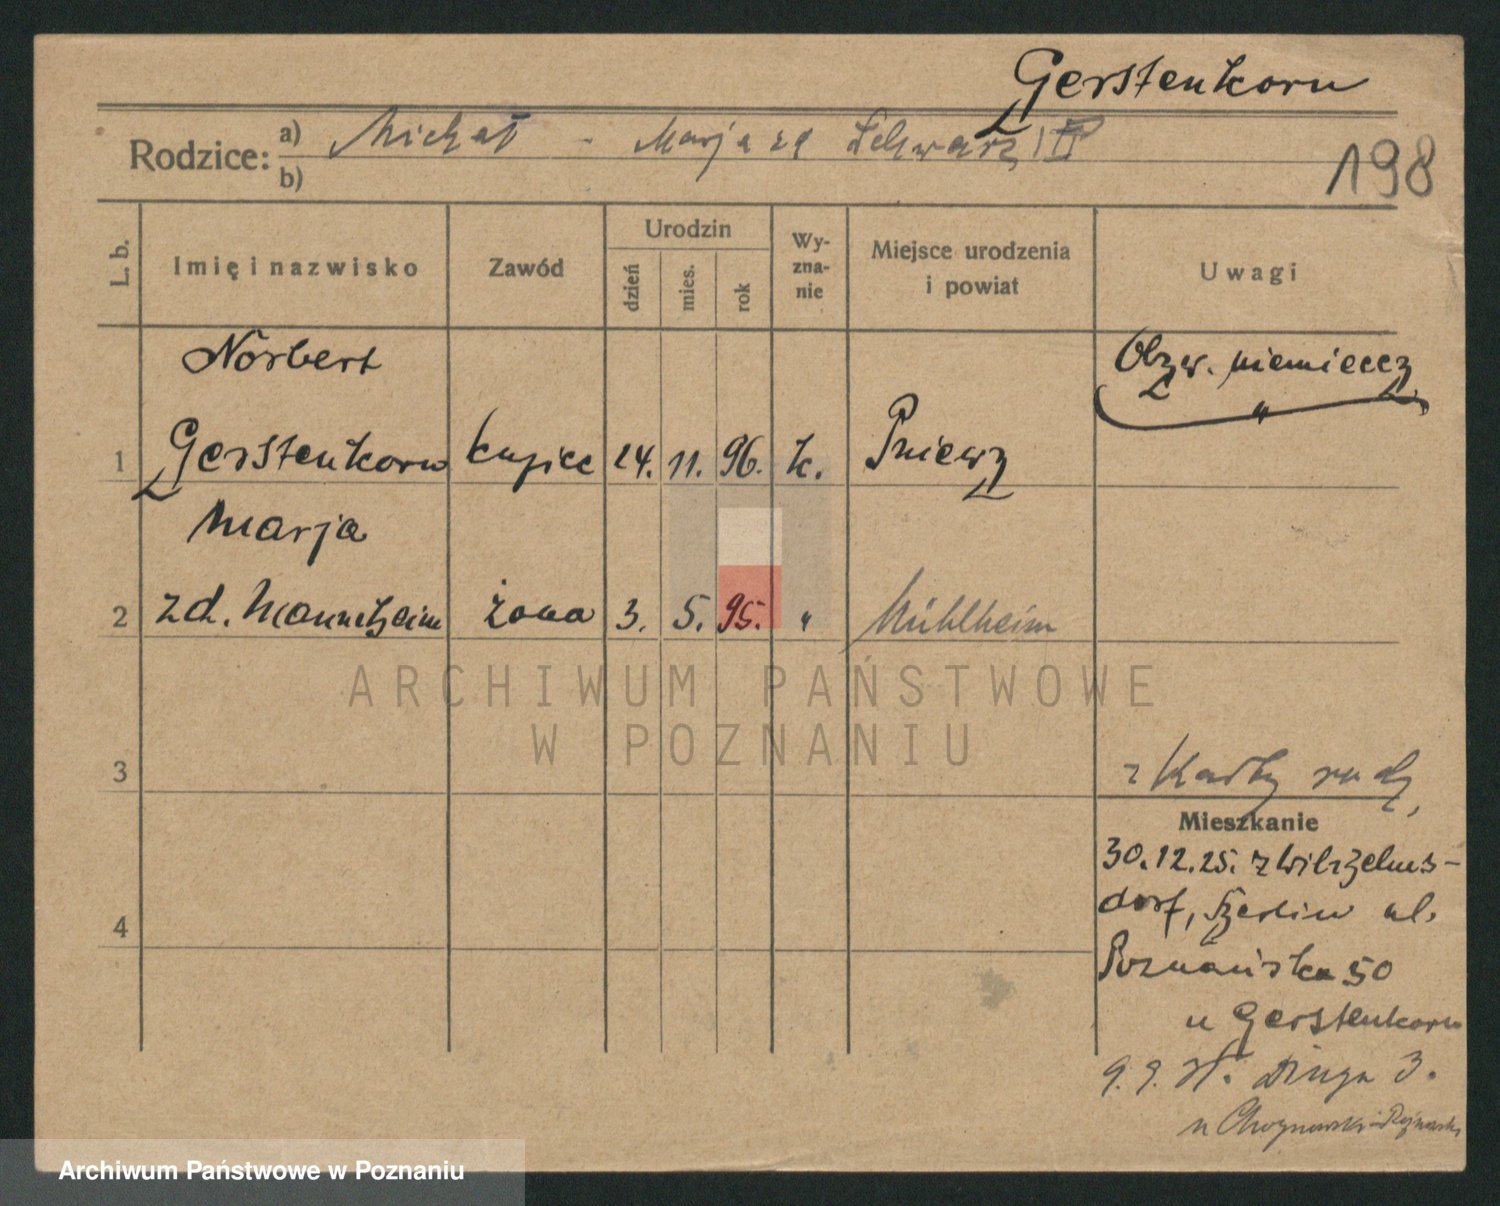 Gerstenkorn
Rodzice:
a) Michał - Marja zd Schwarz
b)
198
L. b.
Imię i nazwisko
Zawód
Urodzin
dzień
mies.
rok
Wy-
zna-
nie
Miejsce urodzenia
i powiat
Uwagi
Norbert
Obyw. niemieccy
"
1 Gerstenkorn kupiec 24. 11. 96. k. Pniewy
Marja
2 zd. Mannheim żona 3. 5. 95. " Mühlheim
ARCHIWUM PAŃSTWOWE
W POZNANIU
3
4
Mieszkanie
30.12.25. z Wilhelms-
dorf, Berlin ul.
Poznańska 50
u Gerstenkorn
Długa 3.
u
Archiwum Państwowe w Poznaniu